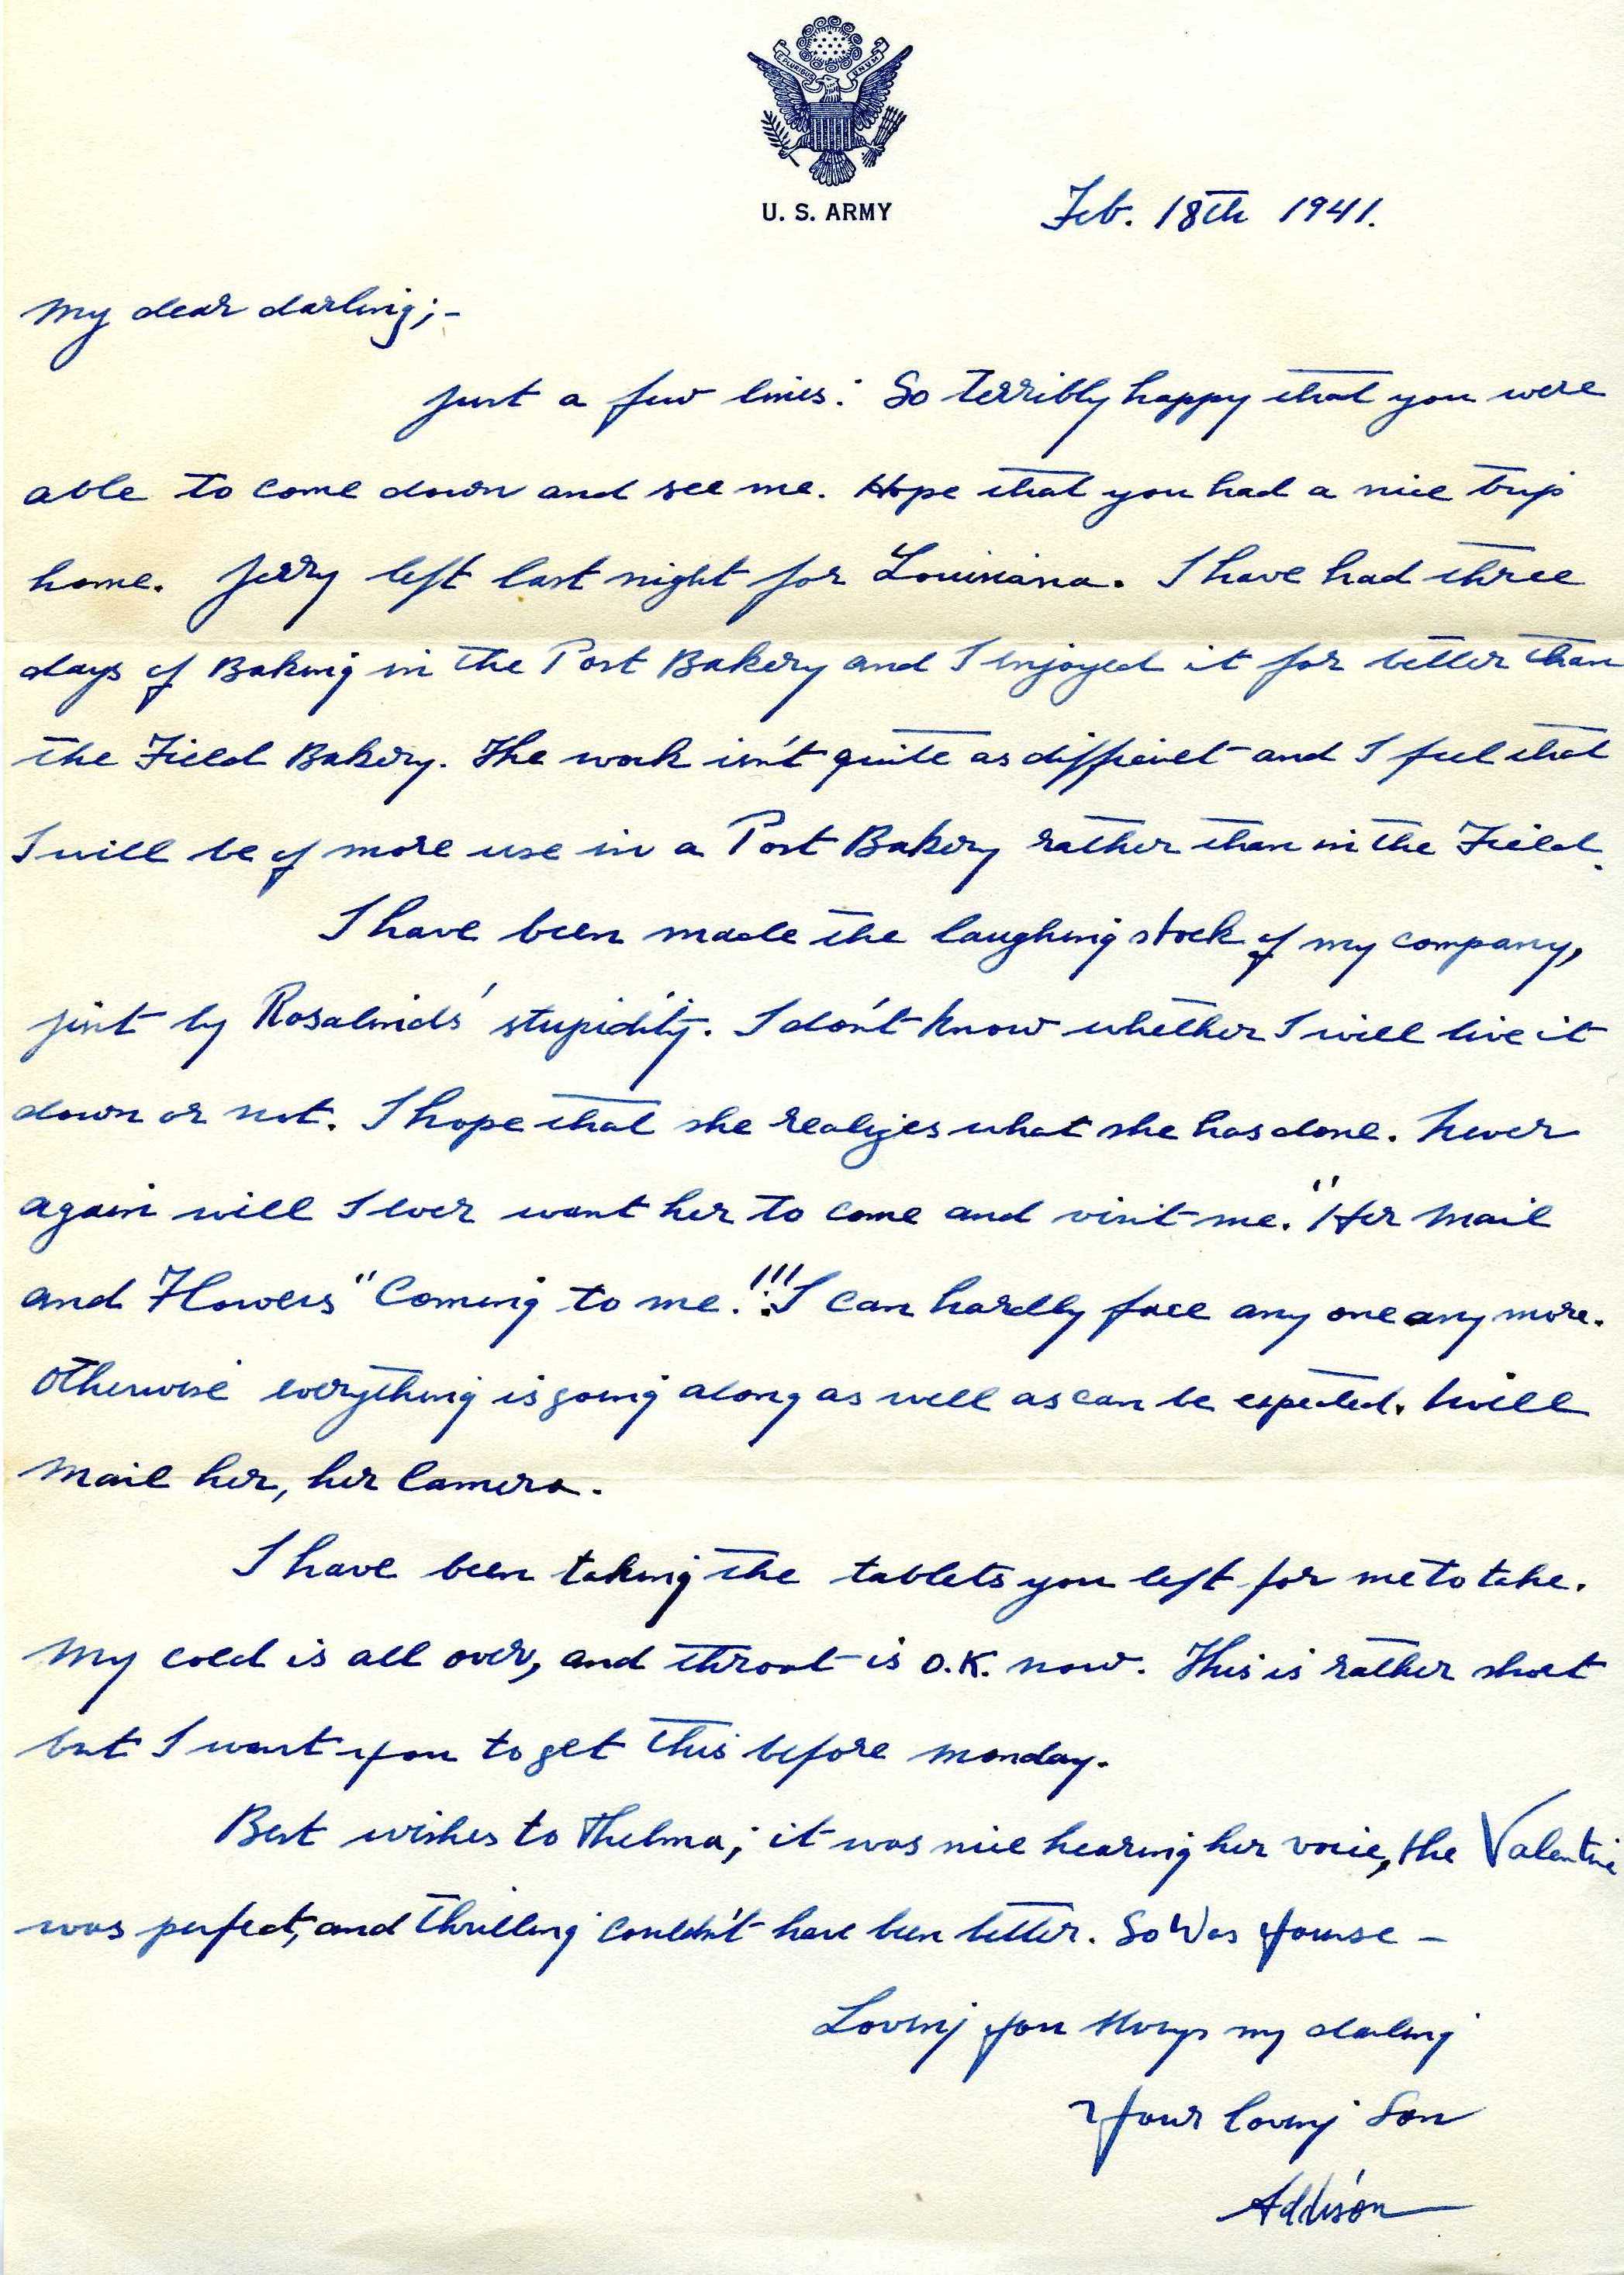 E PLURIBUS UNUM
U. S. ARMY
Feb. 18th 1941.
My dear darling;-
Just a few lines: So terribly happy that you were
able to come down and see me. Hope that you had a nice trip
home. Jerry left last night for Louisiana. I have had three
days of Baking in the Post Bakery and I enjoyed it far better than
the Field Bakery. The work isn't quite as difficult and I feel that
I will be of more use in a Post Bakery rather than in the Field.
I have been made the laughing stock of my company,
just by Rosalind's stupidity. I don't know whether I will live it
down or not. I hope that she realizes what she has done. Never
again will I ever want her to come and visit me. "Her Mail
and Flowers" Coming to me!!! I can hardly face any one any more.
Otherwise everything is going along as well as can be expected. Will
mail her, her Camera.
I have been taking the tablets you left for me to take.
My cold is all over, and throat is O.K. now. This is rather short
but I want you to get this before Monday.
Best wishes to Thelma; it was nice hearing her voice, the Valentine
was perfect, and thrilling couldn't have been better. So Was
Loving you always my darling
Your loving Son
Addison